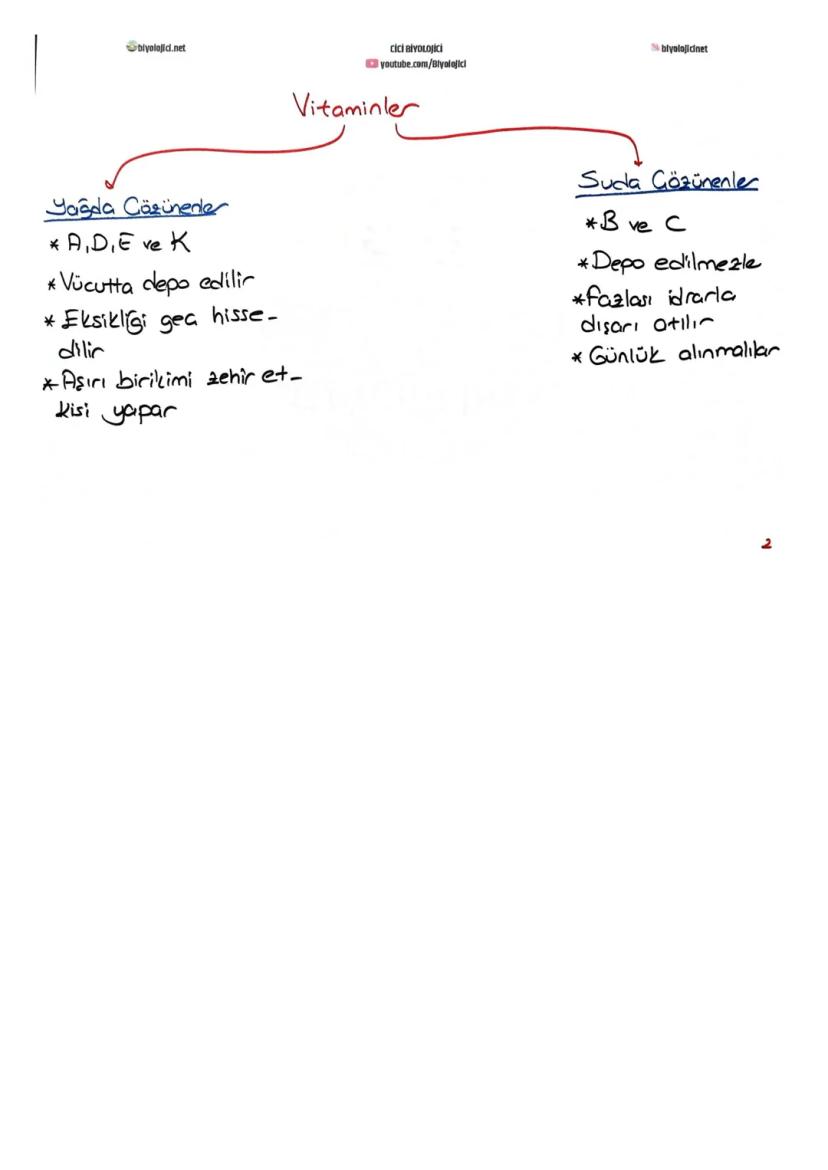 biyolojici.net
CİCİ BİYOLOJİCİ
youtube.com/Biyolojici
biyolojicinet
Vitaminler
Yağda Çözünenler
* A, D, E ve K
* Vücutta depo edilir
* Eksikliği geç hisse-
dilir
* Aşırı birikimi zehir et-
kisi yapar
Suda Çözünenler
* B ve C
* Depo edilmezle
* Fazlası idrarla
dışarı atılır
* Günlük alınmalılar
2